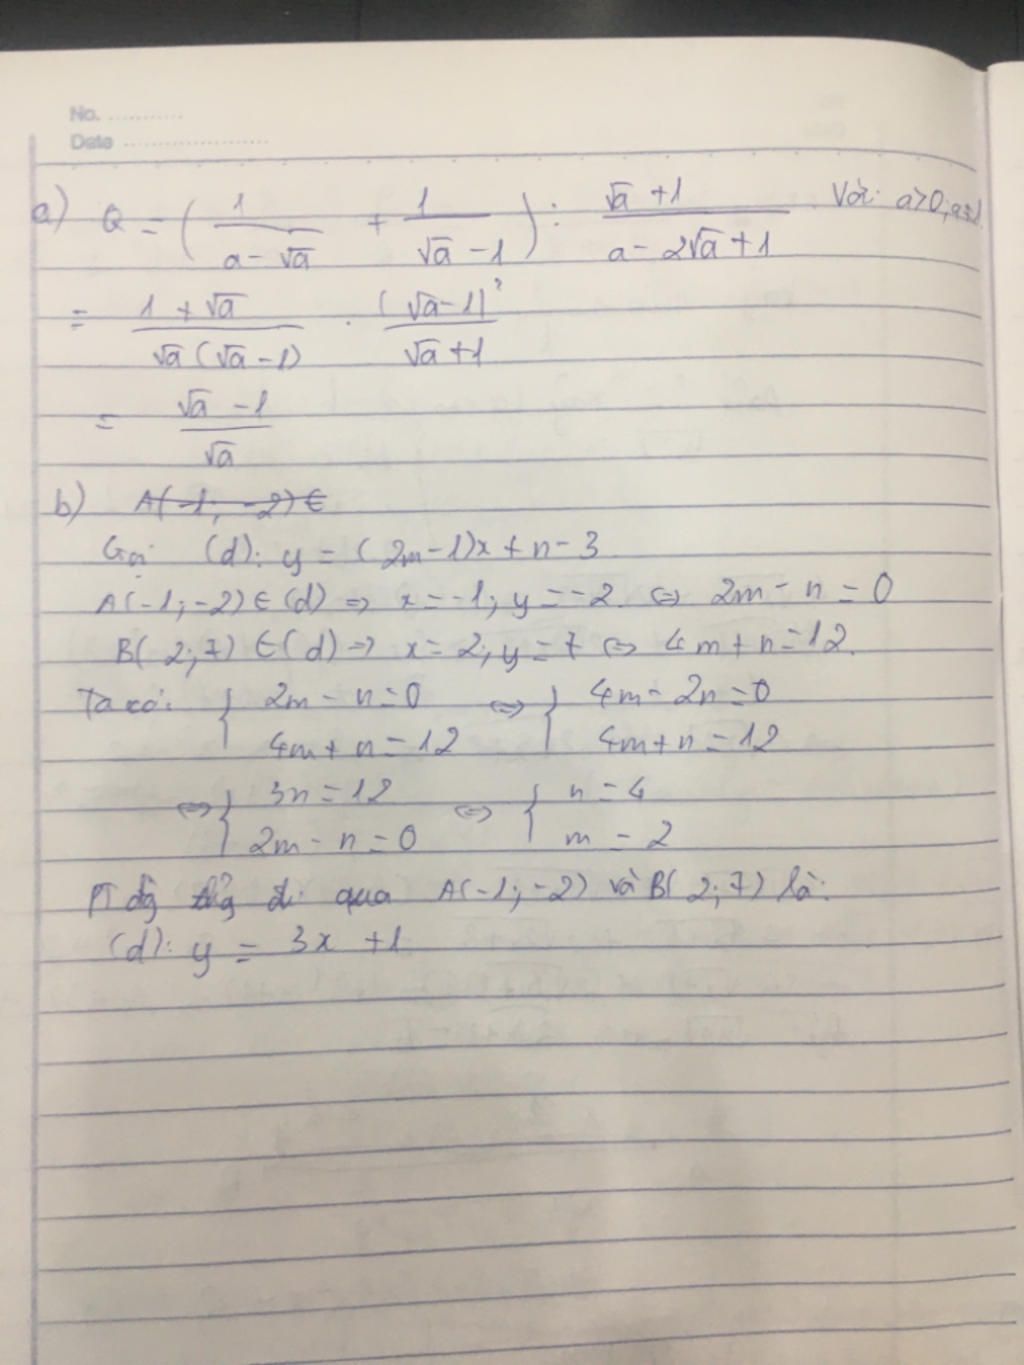 No. ............
Date ........................
a) Q = ( 1/(a - √a) + 1/(√a - 1) ) : (√a + 1)/(a - 2√a + 1) Với: a>0; a≠1
= (1 + √a)/(√a(√a - 1)) . (√a - 1)²/(√a + 1)
= (√a - 1)/√a
b) A(-1; -2) ∈
Gọi (d): y = (2m - 1)x + n - 3
A(-1; -2) ∈ (d) => x = -1; y = -2. <=> 2m - n = 0
B(2; 7) ∈ (d) => x = 2; y = 7 <=> 4m + n = 12.
Ta có: { 2m - n = 0 <=> { 4m - 2n = 0
4m + n = 12 4m + n = 12
<=> { 3n = 12 <=> { n = 4
2m - n = 0 m = 2
PT đg thẳg đi qua A(-1; -2) và B(2; 7) là:
(d): y = 3x + 1